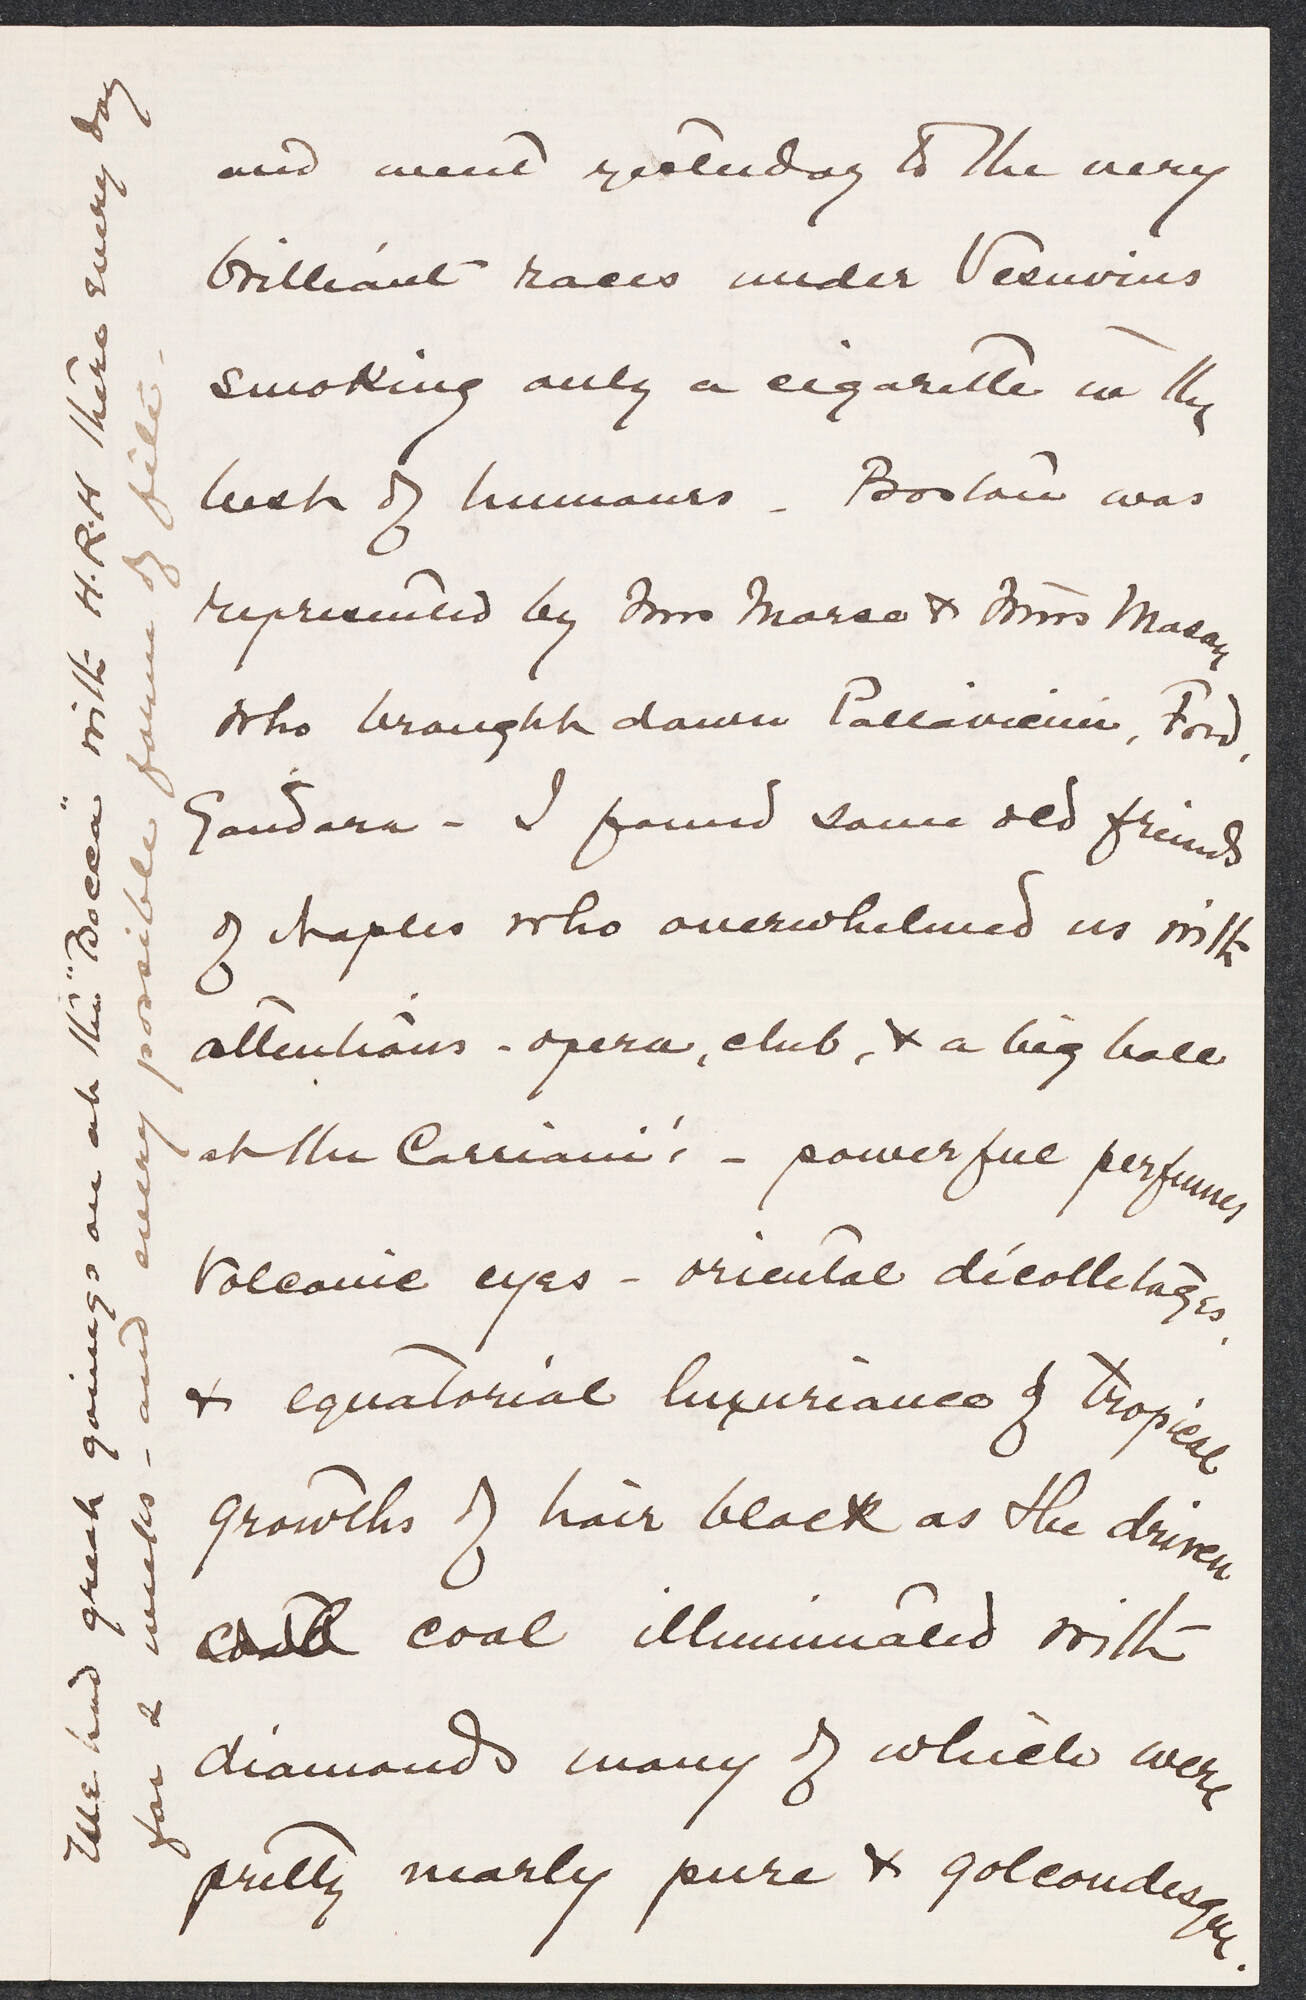 and went yesterday to the very
brilliant races under Vesuvius
smoking only a cigarette in the
best of humours _ Boston was
represented by Mrs Morse & Mrs Mason
who brought down Pallavicini, Ford,
Gandara - I found some old friends
of Naples who overwhelmed us with
attentions - opera, club, & a big ball
at the - powerful perfumes
volcanic eyes - oriental décolletages,
& equatorial luxuriance of tropical
growths of hair black as the driven
coal illuminated with
diamonds many of which were
pretty nearly pure & golcondesque.
We had great goings on at the "Bocca" with H.R.H there every day
for 2 weeks - and every possible form of fête -